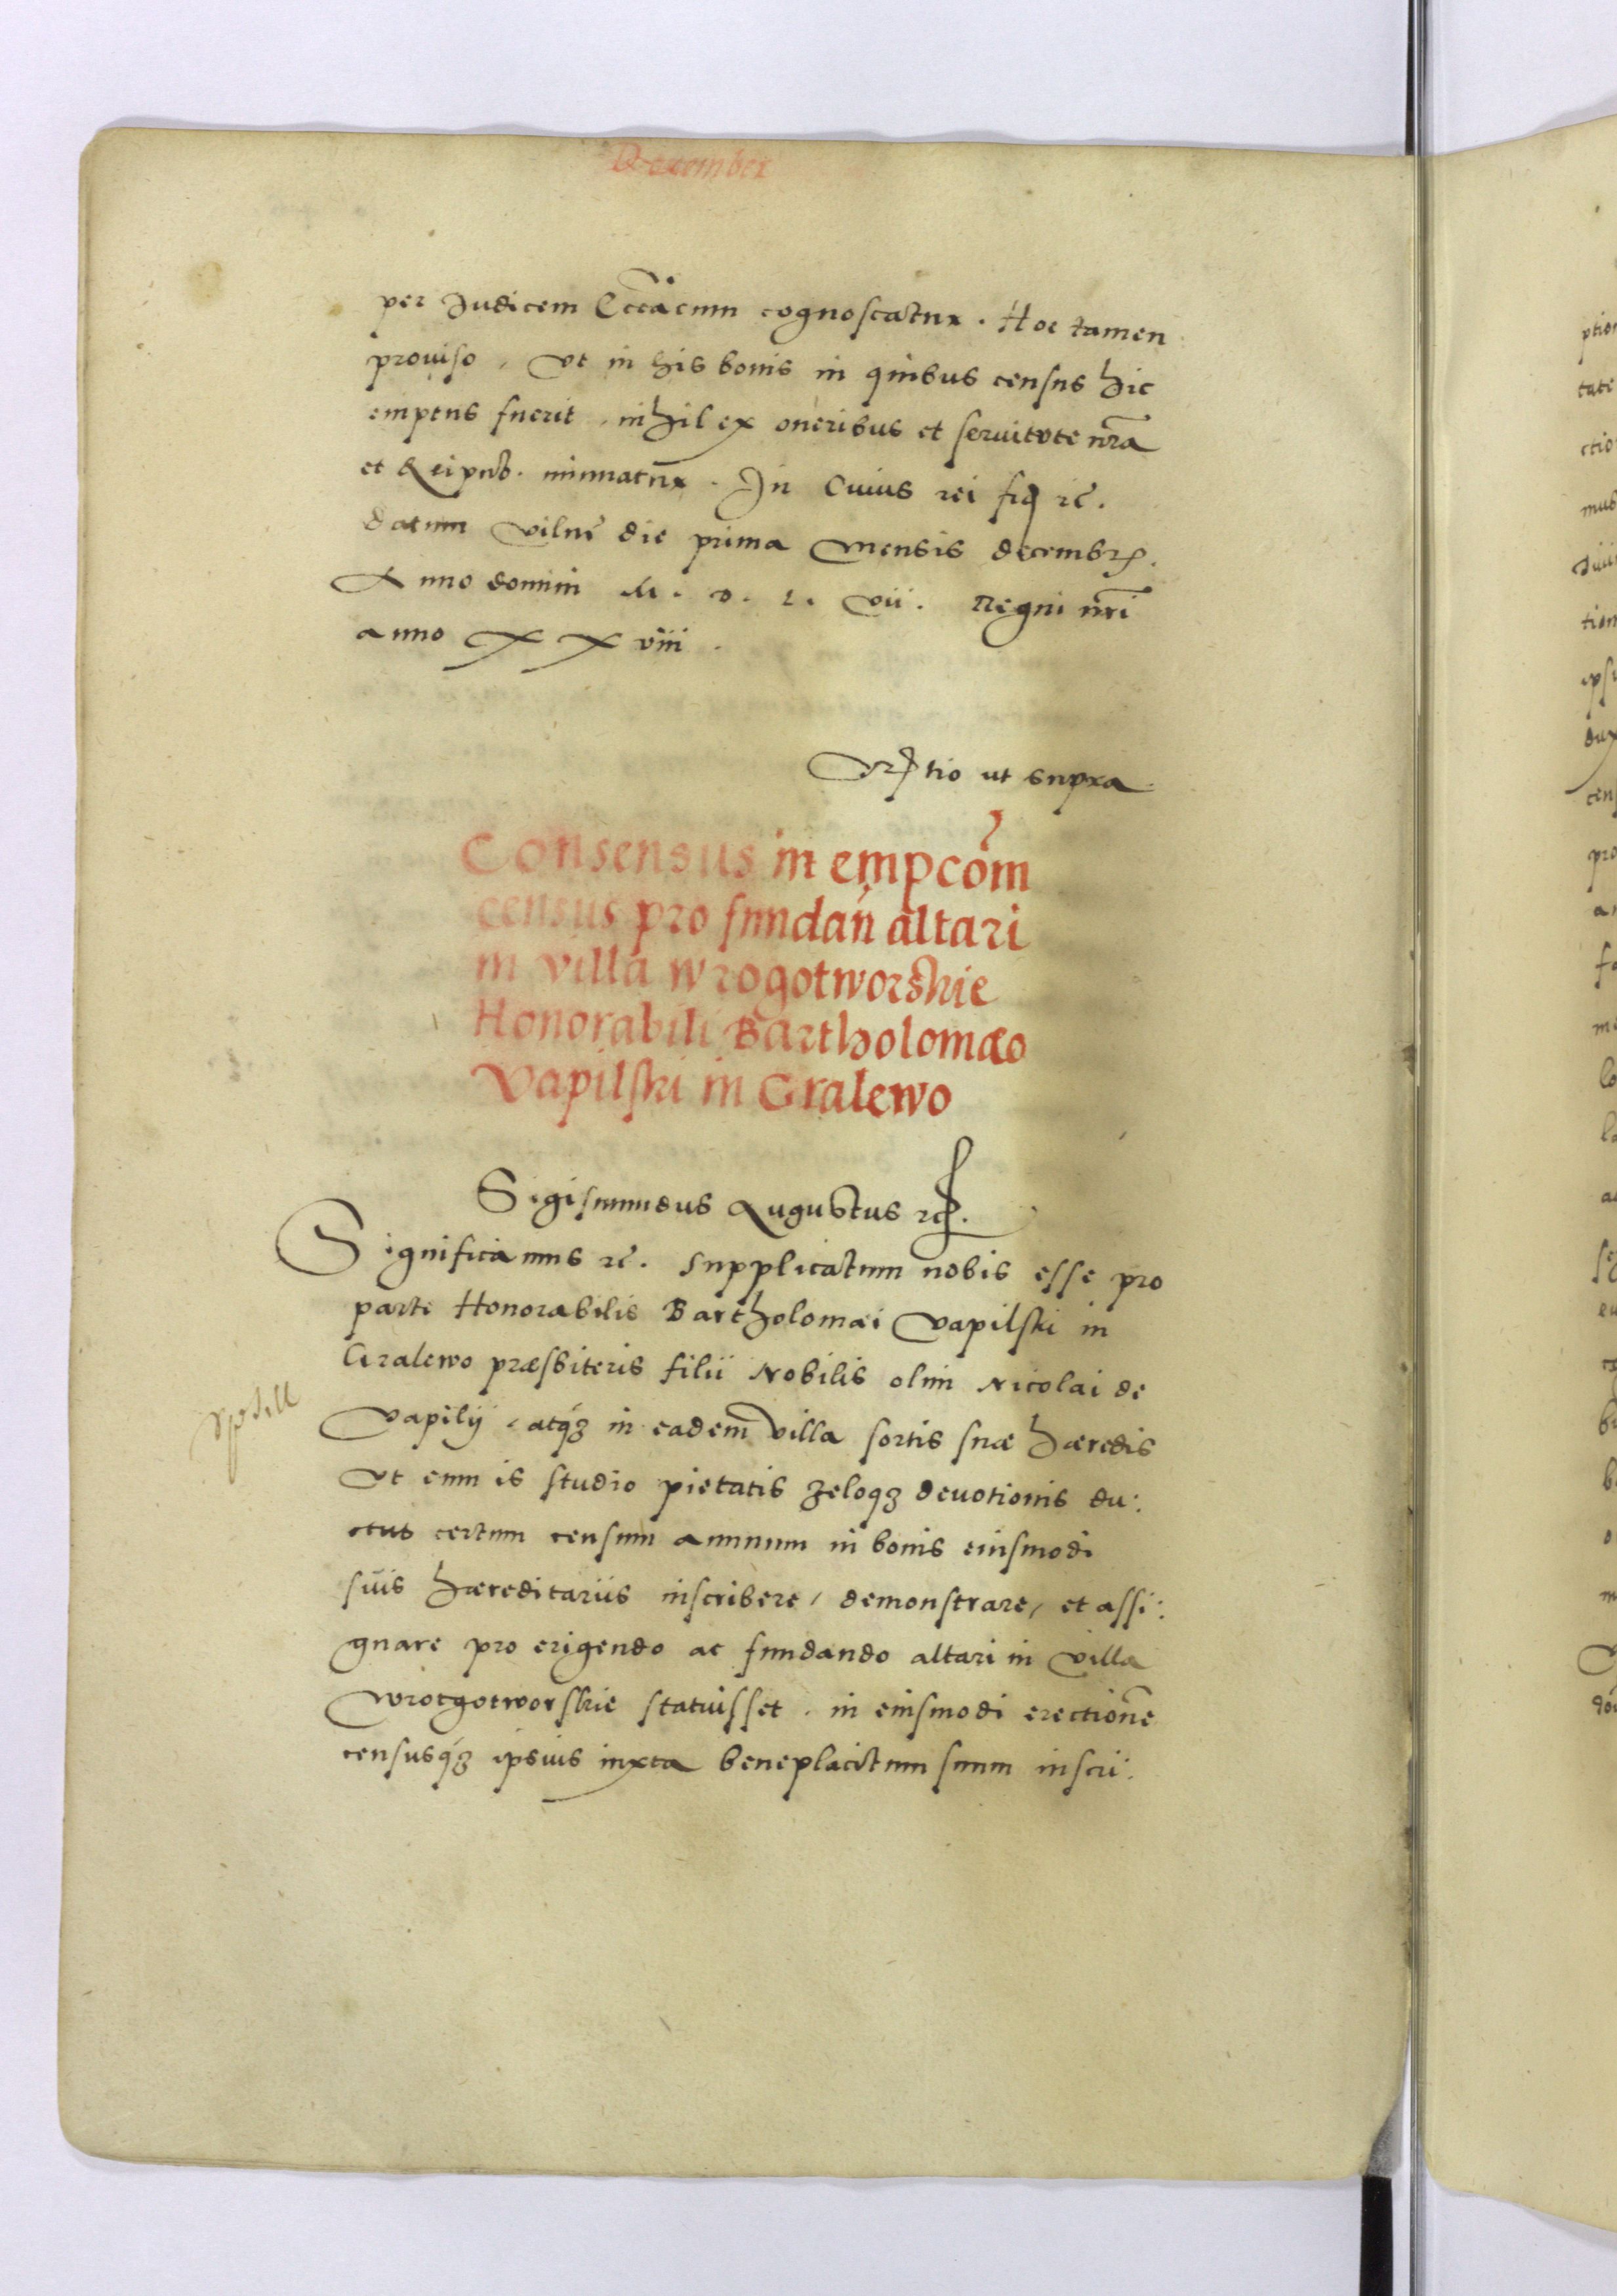 December
per Judicem Eccłiacum cognoscatur. Hoc tamen
prouiso, vt in his bonis in quibus census hic
emptus fuerit, nihil ex oneribus et seruitute nrã
et Reipub. minuatur. In Cuius rei fid rc̃.
datum Vilnę die prima Mensis decembr.
Anno domini M. D. L. vii. Regni nrĩ
anno XXviii.
ut supra
Consensus in empcõm
census pro fundań altari
in villa Wrogotworskie
Honorabili Bartholomæo
Vapilski in Gralewo
Sigismundus Augustus
Significamus rc̃. Supplicatum nobis esse pro
parte Honorabilis Bartholomæi Vapilski in
Gralewo præsbiteris filii Nobilis olim Nicolai de
Vapilij, atqꝫ in eadem villa sortis suæ hæredis
Vt cum is studio pietatis zeloqꝫ deuotionis du:
ctus certum censum annuum in bonis eiusmodi
suis hæreditariis inscribere, demonstrare, et assi:
gnare pro erigendo ac fundando altari in villa
Wrotgotworskie statuisset, in eiusmodi erectionẽ
censusqꝫ ipsius iuxta beneplacitum suum inscri: